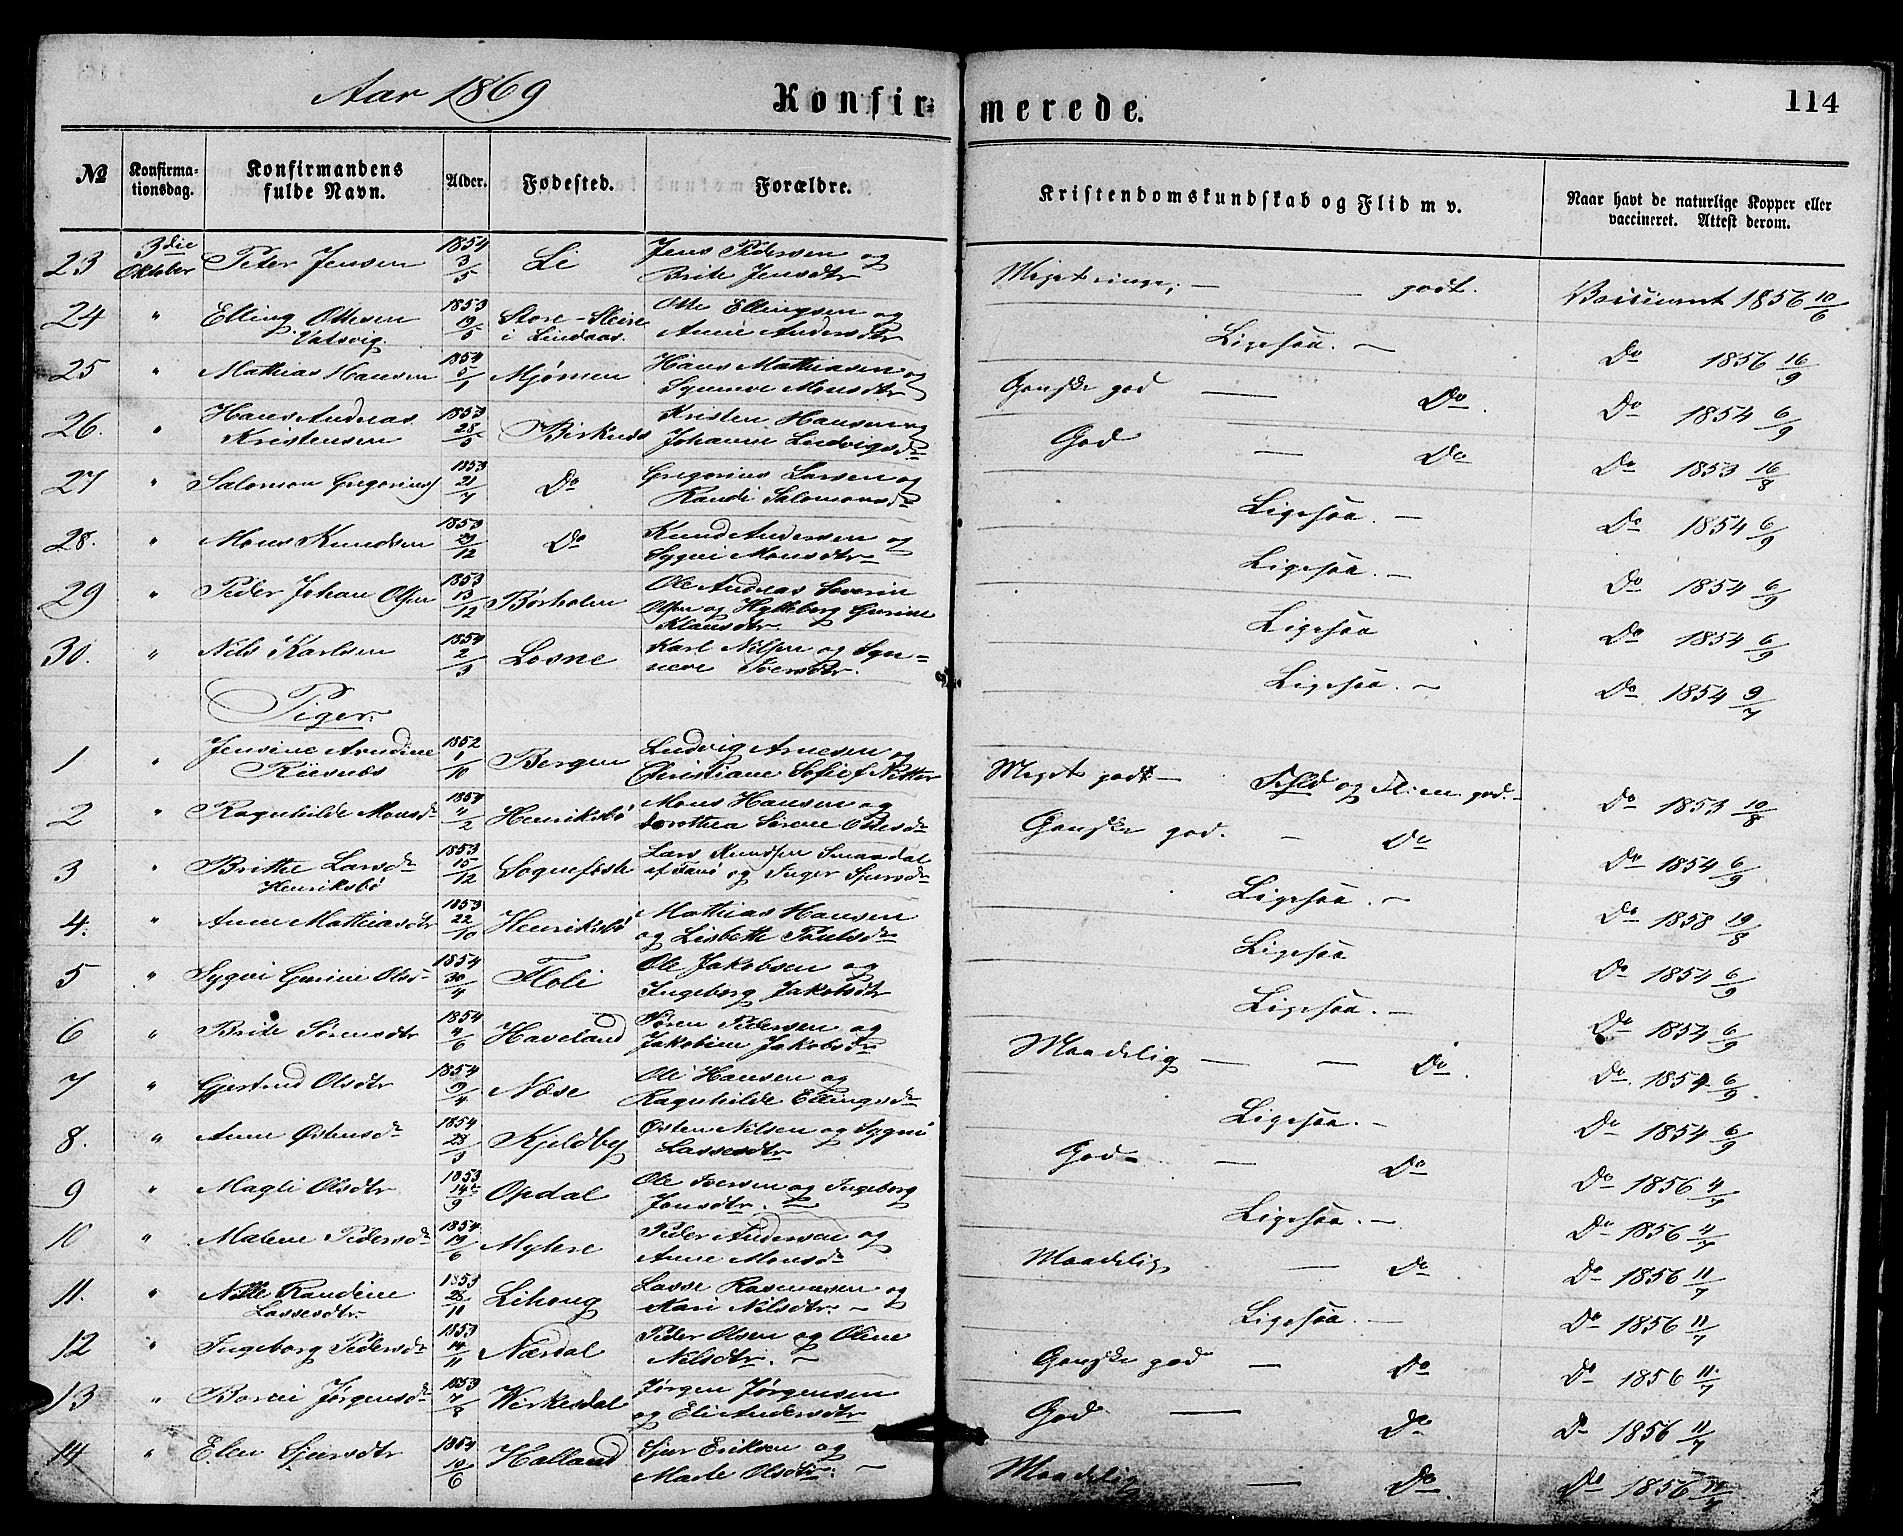 Aar 1869 Konfirmerede. 114
№ Konfirmationsdag. Konfirmandens fulde Navn. Alder. Fødested. Forældre. Kristendomskundskab og Flid m v. Naar havt de naturlige Kopper eller vaccineret. Attest derom.
23 3die Oktober Peter Jensen 1854 3/5 Li Jens Pedersen og Brite Jensdtr Meget ringe; — — godt. 1856 10/6
24 " Elling Ottesen Vatsvig. 1853 19/5 Store- i Lindaas. Otte Ellingsen og Anne Andersdtr Ligesaa. — Do 1856 16/9
25 " Mathias Hansen 1854 5/1 Mjømen Hans Mathiasen og Synneve Monsdtr Ganske god — Do. Do 1854 6/9
26. " Hans Andreas Kristensen 1853 28/5 Birknes Kristen Hansen og Johanne Ludvigsd God — Do Do 1853 16/8
27 " Salomon Gregorius 1853 21/7 Do Gregorius Larsen og Randi Salomonsd Ligesaa. — Do 1854 6/9
28. " Mons Knudsen 1853 29/12 Do Knud Andersen og Sygni Monsdtr Ligesaa. — Do 1854 6/9
29 " Peder Johan Olsen 1853 13/12 Børholm Ole Andreas Severin Olsen og Gurine Klausdtr. Ligesaa Do 1854 6/9
30. " Nils Karlsen 1854 2/3 Losne Karl Nilsen og Synneve Iversdtr. Ligesaa. — Do 1854 9/7
Piger.
1 " Jensine Arndine Riisnæs 1852 1/10 Bergen Ludvig Arnesen og Christiane Sofie f. Netter Meget godt — Do 1853 10/8
2 " Ragnhilde Monsd 1854 4/2 Henriksbø Mons Hansen og Dorothea Sørine Ottesd Ganske god. — Do Do 1854 6/9
3 " Brithe Larsd Henriksbø 1853 15/12 Sognefeste Lars Knudsen og Inger Sjursd Ligesaa. — Do 1858 19/8
4. " Anne Mathiasdtr 1853 22/10 Henriksbø Mathias Hansen og Lisbeth Poulsd Ligesaa Do 1854 6/9
5 " Sygni Gurine Olsd 1854 30/4 Floli Ole Jakobsen og Ingeborg Jakobsdtr Ligesaa. — Do 1854 6/9
6 " Brite Sørensdtr 1854 4/6 Haveland Søren Pedersen og Jakobine Jakobsdtr Maadelig — — Do. Do 1854 6/9
7 " Gjertrud Olsdtr 1854 9/4 Næse Ole Hansen og Ragnhilde Ellingsd Ligesaa. — Do 1854 6/9
8. " Anne Østensd 1854 23/3 Kjeldby Østen Nilsen og Sygni Lassesdtr God — Do Do 1856 4/7
9 " Magli Olsdtr 1853 14/9 Opdal Ole Iversen og Ingeborg Jonsdtr. Ligesaa. — Do 1856 4/7
10 " Malene Pedersd 1854 19/6 Myhre Peder Andersen og Anne Monsd Maadelig — Do Do 1856 11/7
11. " Nille Randine Lassesdtr. 1853 28/10 Lihoug Lasse Rasmussen og Kari Nilsdtr. — Ligesaa. — Do 1856 11/7
12 " Ingeborg Pedersd 1853 14/11 Nærdal Peder Olsen og Oline Nilsdtr. — Ganske god — Do Do 1856 11/7
13 " Jørgensd 1853 7/8 Virkesdal Jørgen Jørgensen og Eli Andersdtr God — Do Do 1856 11/7
14 " Elen Sjursdtr 1854 10/6 Halland Sjur Eriksen og Marte Olsdtr. — Maadelig — Do. Do 1856 11/7